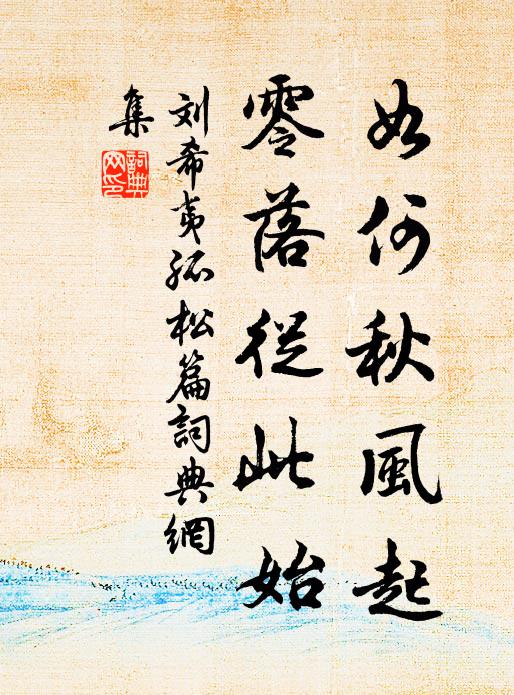 如何秋風起
零落從此始
刘希夷孤松篇詞典網
集
詞典
网印